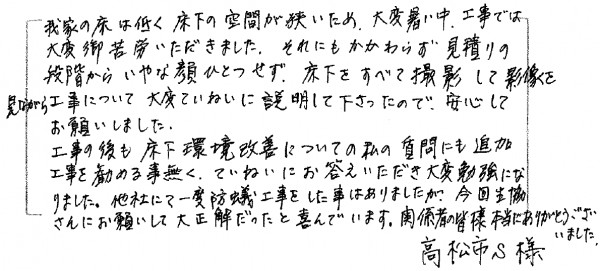 我家の床は低く床下の空間が狭いため、大変暑い中、工事では
大変御苦労いただきました。それにもかかわらず見積りの
段階からいやな顔ひとつせず、床下をすべて撮影して影像を
見ながら工事について大変ていねいに説明して下さったので、安心して
お願いしました。
工事の後も床下環境改善についての私の質問にも追加
工事を勧める事無く、ていねいにお答えいただき大変勉強にな
りました。他社にて一度防蟻工事をした事はありましたが、今回生協
さんにお願いして大正解だったと喜んでいます。関係者の皆様本当にありがとうござい
いました。
高松市S様